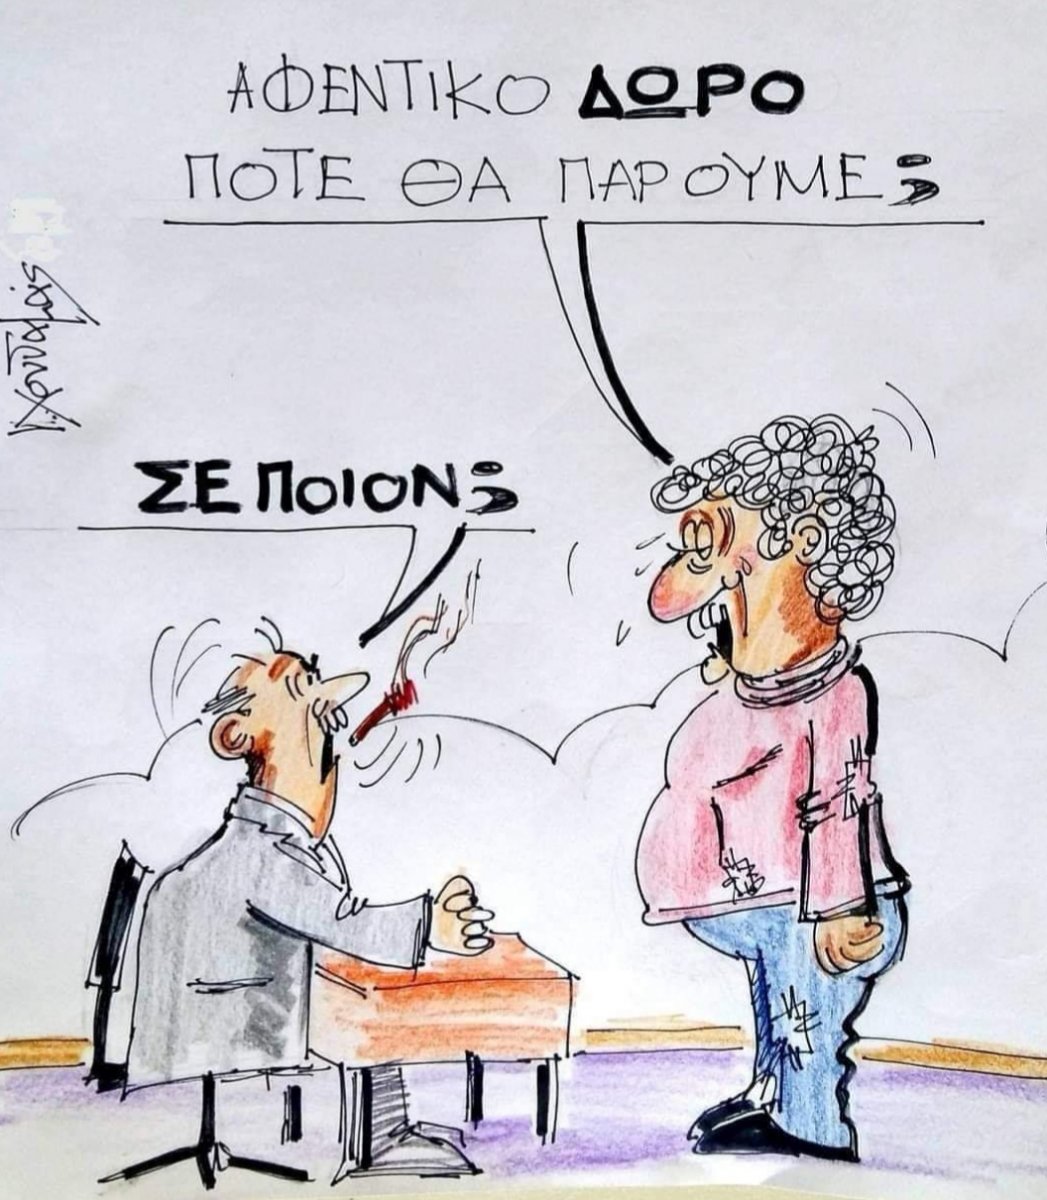 ΑΦΕΝΤΙΚΟ ΔΩΡΟ
ΠΟΤΕ ΘΑ ΠΑΡΟΥΜΕ;
ΣΕ ΠΟΙΟΝ;